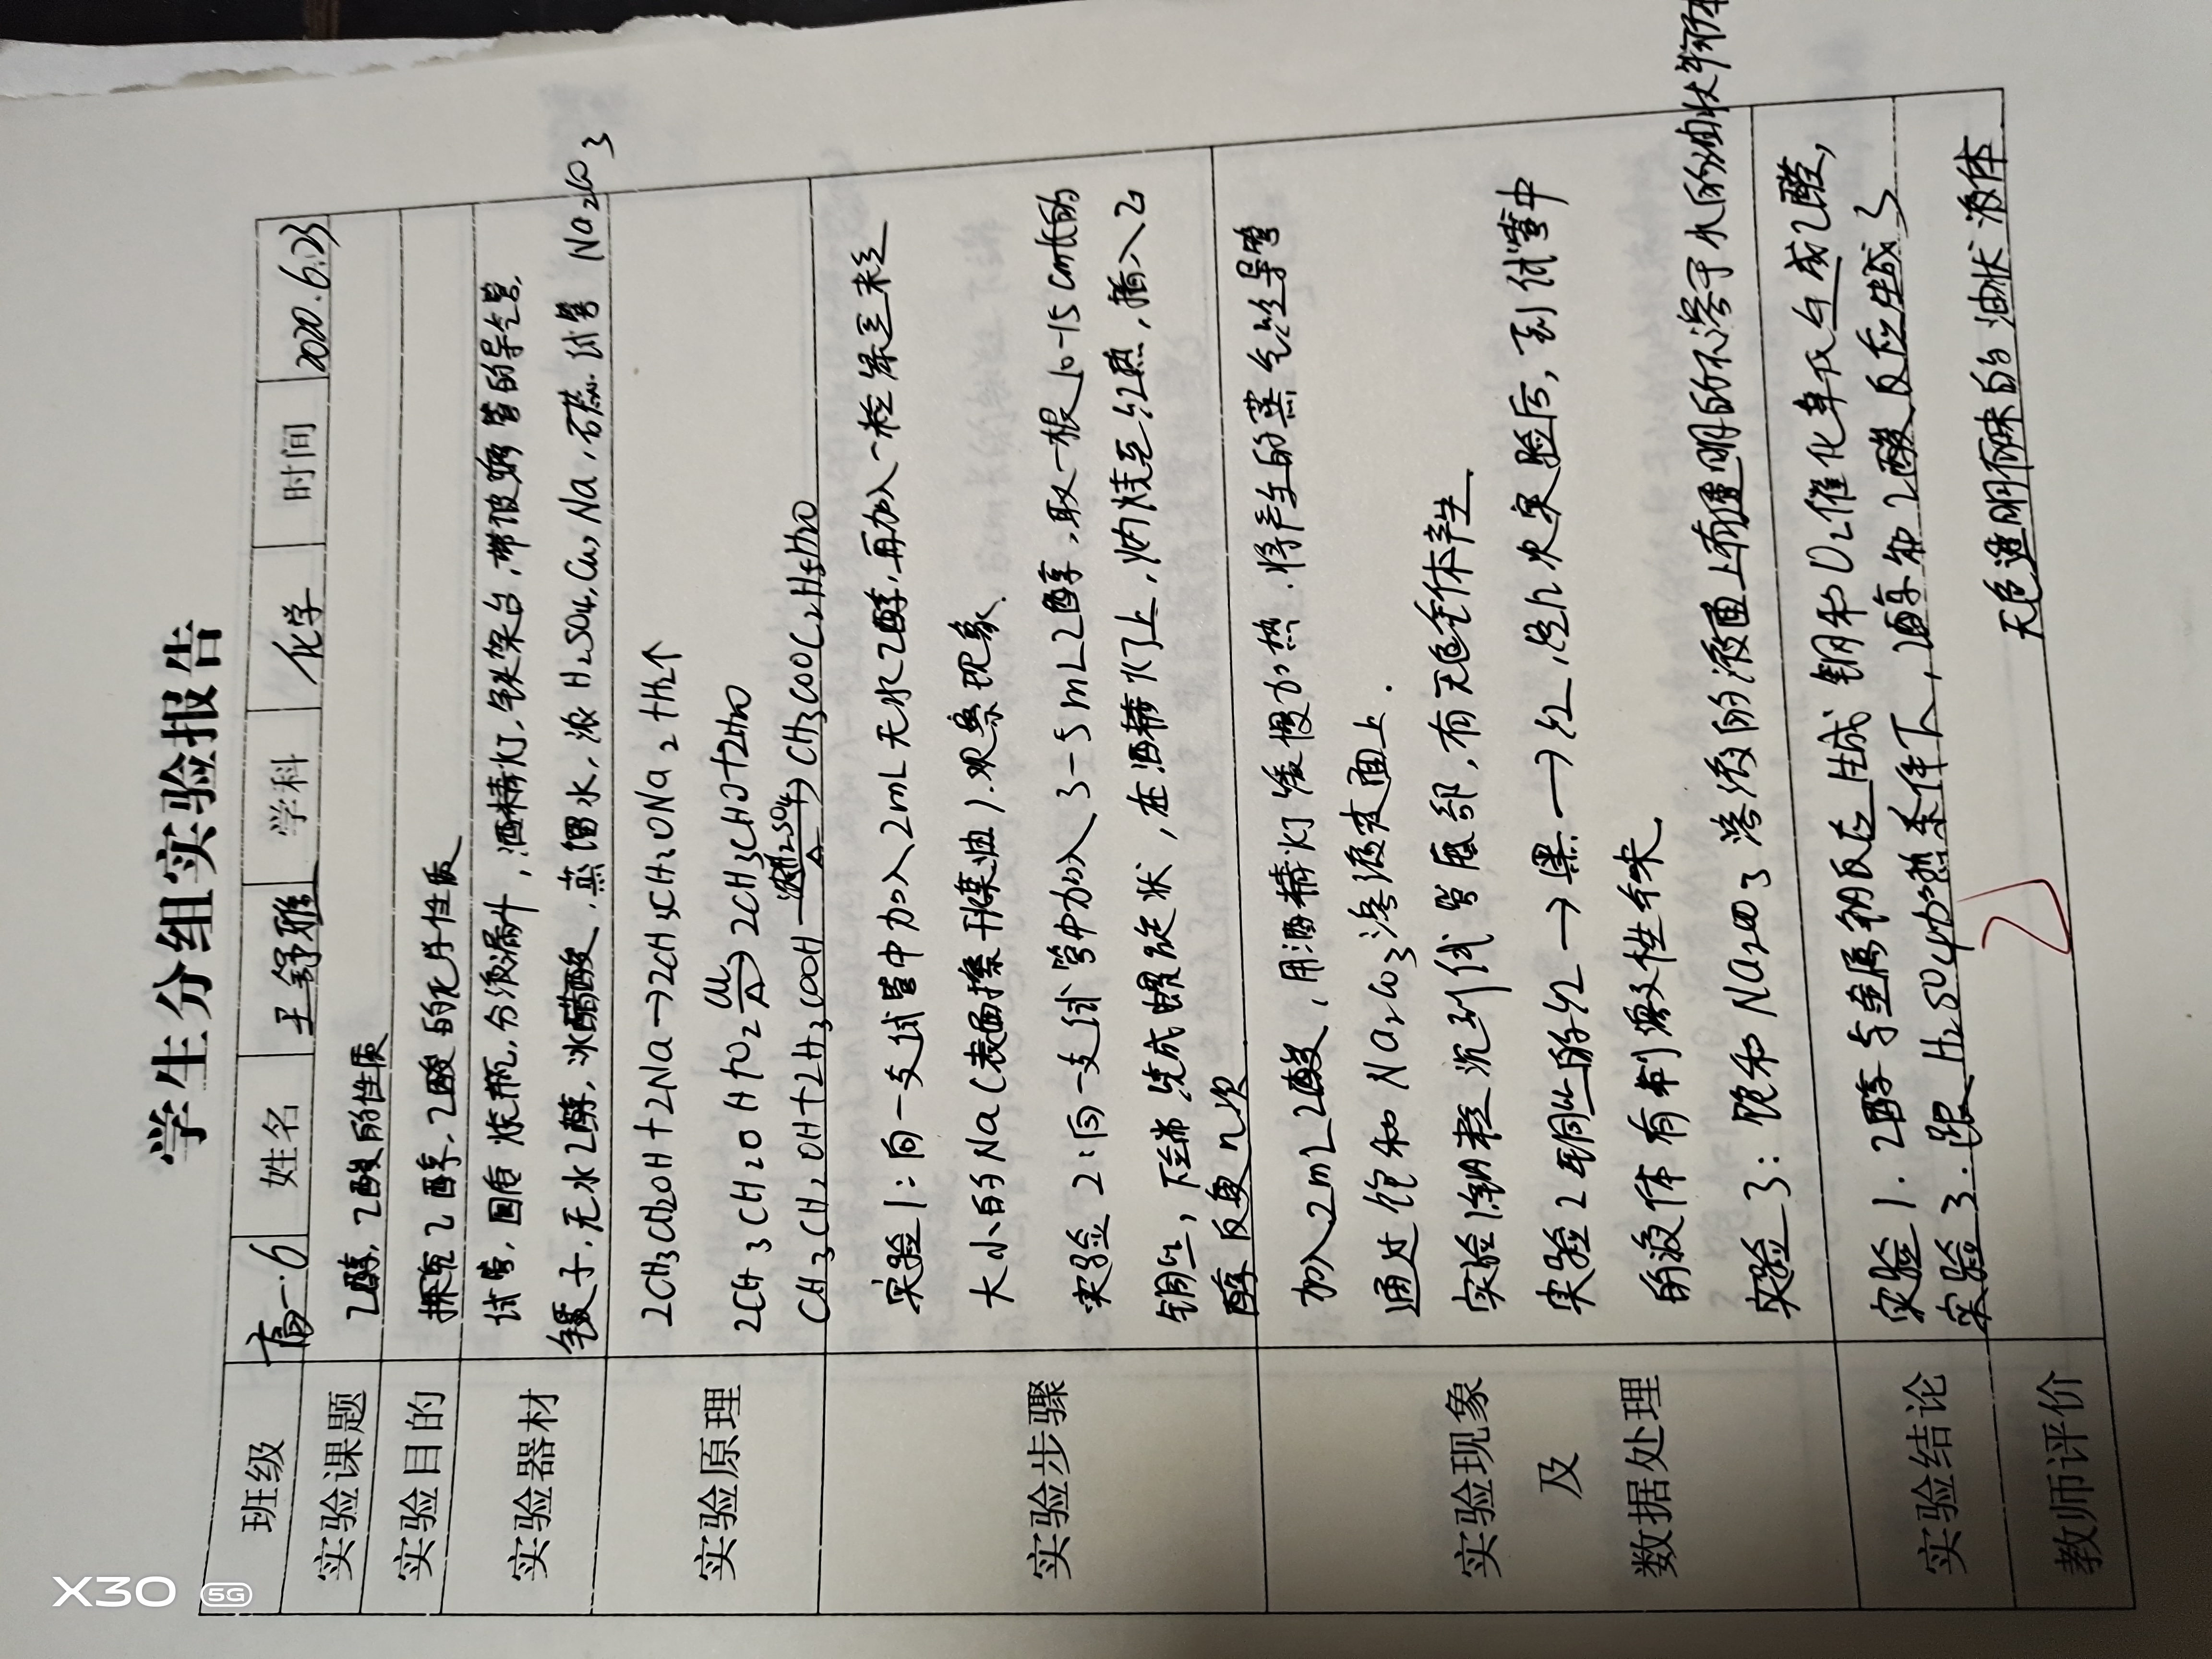 学生分组实验报告
班级 高一.6 姓名 王舒雅 学科 化学 时间 2020.6.23
实验课题 乙醇,乙酸的性质
实验目的 探究乙醇,乙酸的化学性质
实验器材 试管,圆底烧瓶,分液漏斗,酒精灯,铁架台,带玻璃管的导气管,
镊子,无水乙醇,冰醋酸,蒸馏水,浓H2SO4,Cu,Na,石蕊试管 Na2CO3
实验原理 2CH3CH2OH+2Na→2CH3CH2ONa2+H2↑
2CH3CH2OH+O2 Cu △→ 2CH3CHO+2H2O
CH3CH2OH+2H3COOH 浓H2SO4 △→ CH3COOC2H5H2O
实验步骤 实验1:向一支试管中加入2mL无水乙醇,再加入一粒绿豆粒
大小的Na(表面擦干煤油).观察现象.
实验2:向一支试管中加入3-5mL乙醇,取一根10-15cm长的
铜丝,下端烧成螺旋状,在酒精灯上,灼烧至红热,插入乙
醇反复n次
实验现象及数据处理 加入2mL乙酸,用酒精灯缓慢加热.将产生的蒸气丝导管
通过饱和Na2CO3溶液液面上.
实验1:钠粒沉到试管底部,有无色气体产生
实验2:铜丝由红→黑→红,经n次实验后,到试管中
的液体有刺激性气味
实验3:饱和Na2CO3溶液的液面上有透明的不溶于水的油状
实验结论 实验1.乙醇与金属钠反应生成 铜和O2催化氧化生成乙醛,
实验3. H2SO4加热条件下,乙醇和乙酸反应生成了
无色透明有味的油状液体
教师评价
X30 5G